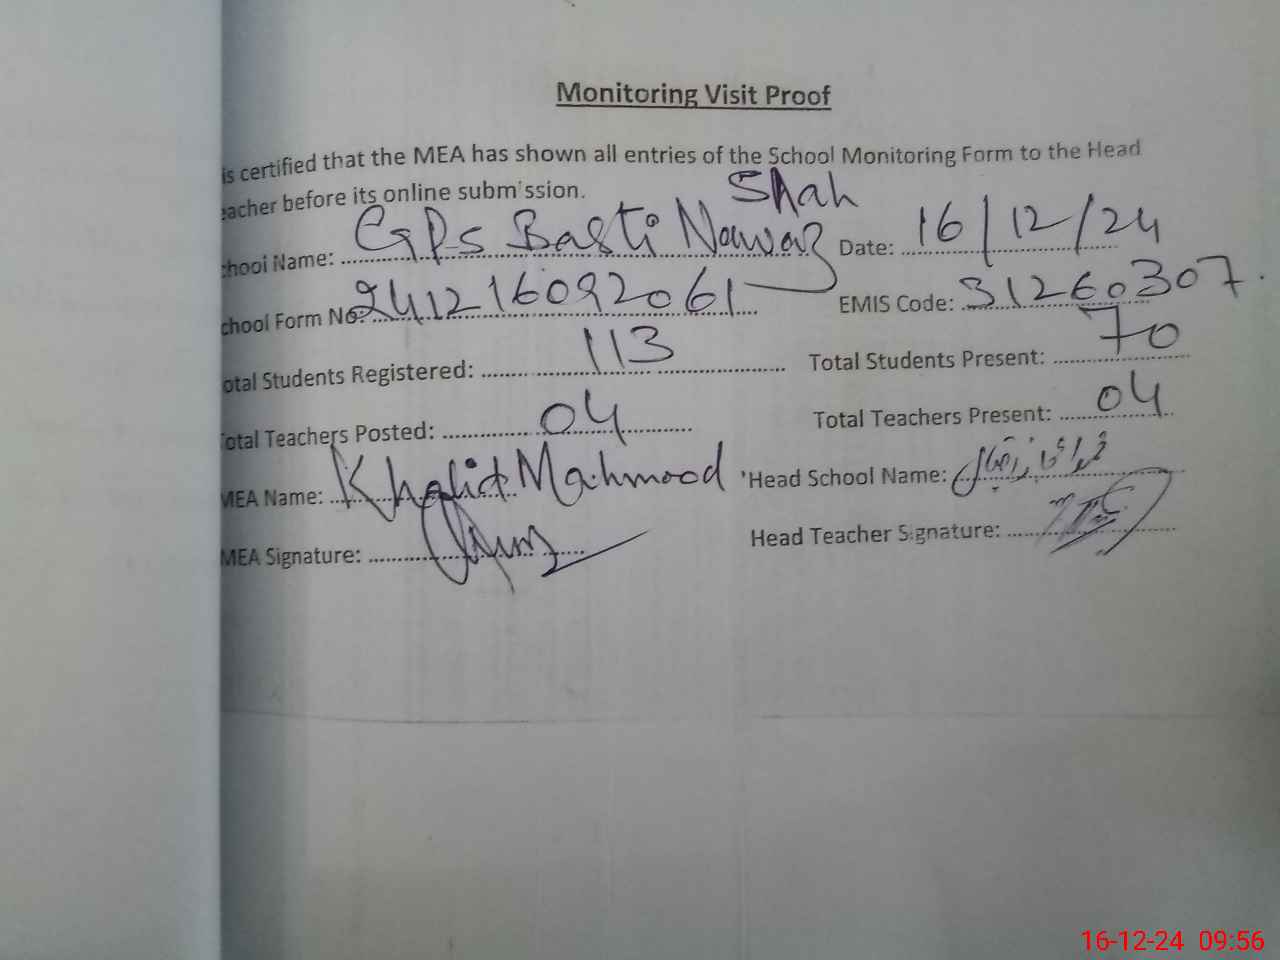 Monitoring Visit Proof
is certified that the MEA has shown all entries of the School Monitoring Form to the Head
eacher before its online subm'ssion.
chool Name: GPS Basti Nawaz Shah Date: 16/12/24
chool Form No: 241216092061 EMIS Code: 31260307.
otal Students Registered: 113 Total Students Present: 70
Total Teachers Posted: 04 Total Teachers Present: 04
MEA Name: Khalid Mahmood Head School Name:
MEA Signature: Head Teacher Signature:
16-12-24 09:56